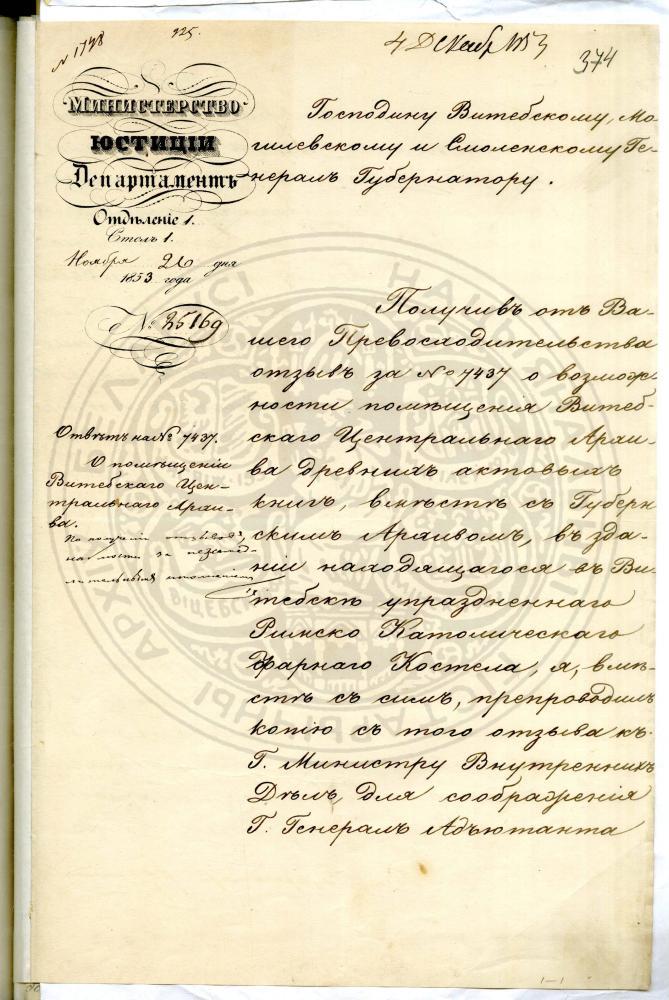 № 1798
225.
4 Декабр 1853
374
МИНИСТЕРСТВО
ЮСТИЦІИ
Департаментъ
Отдѣленіе 1.
Столъ 1.
Ноября 26 дня
1853 года
№ 25169
Отвѣтъ на № 7437.
О помѣщеніи
Витебскаго Цен-
тральнаго Архи-
ва.
По полученіи отзывовъ,
Господину Витебскому, Мо-
гилевскому и Смоленскому Ге-
нералъ Губернатору.
Получивъ отъ Ва-
шего Превосходительства
отзывъ за № 7437 о возмож-
ности помѣщенія Витеб-
скаго Центральнаго Архи-
ва древнихъ актовыхъ
книгъ, вмѣстѣ съ Губерн
скимъ Архивомъ, въ зда-
ніи находящагося въ Ви-
тебскѣ упраздненнаго
Римско Католическаго
Фарнаго Костела, я, вмѣ-
стѣ съ симъ, препроводилъ
копію съ того отзыва къ
Г. Министру Внутреннихъ
Дѣлъ, для соображенія
Г. Генералъ Адъютанта